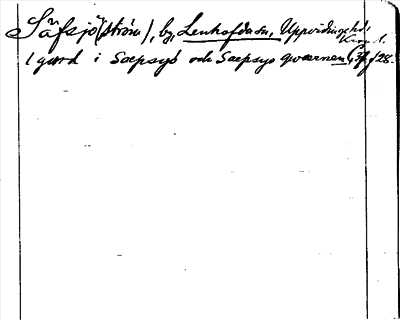 Säfsjö(ström), by, Lenhofda sn, Uppvidinge hd,
Kron. l.
1 gård i Saepsyö och Saepsyo qwaernen